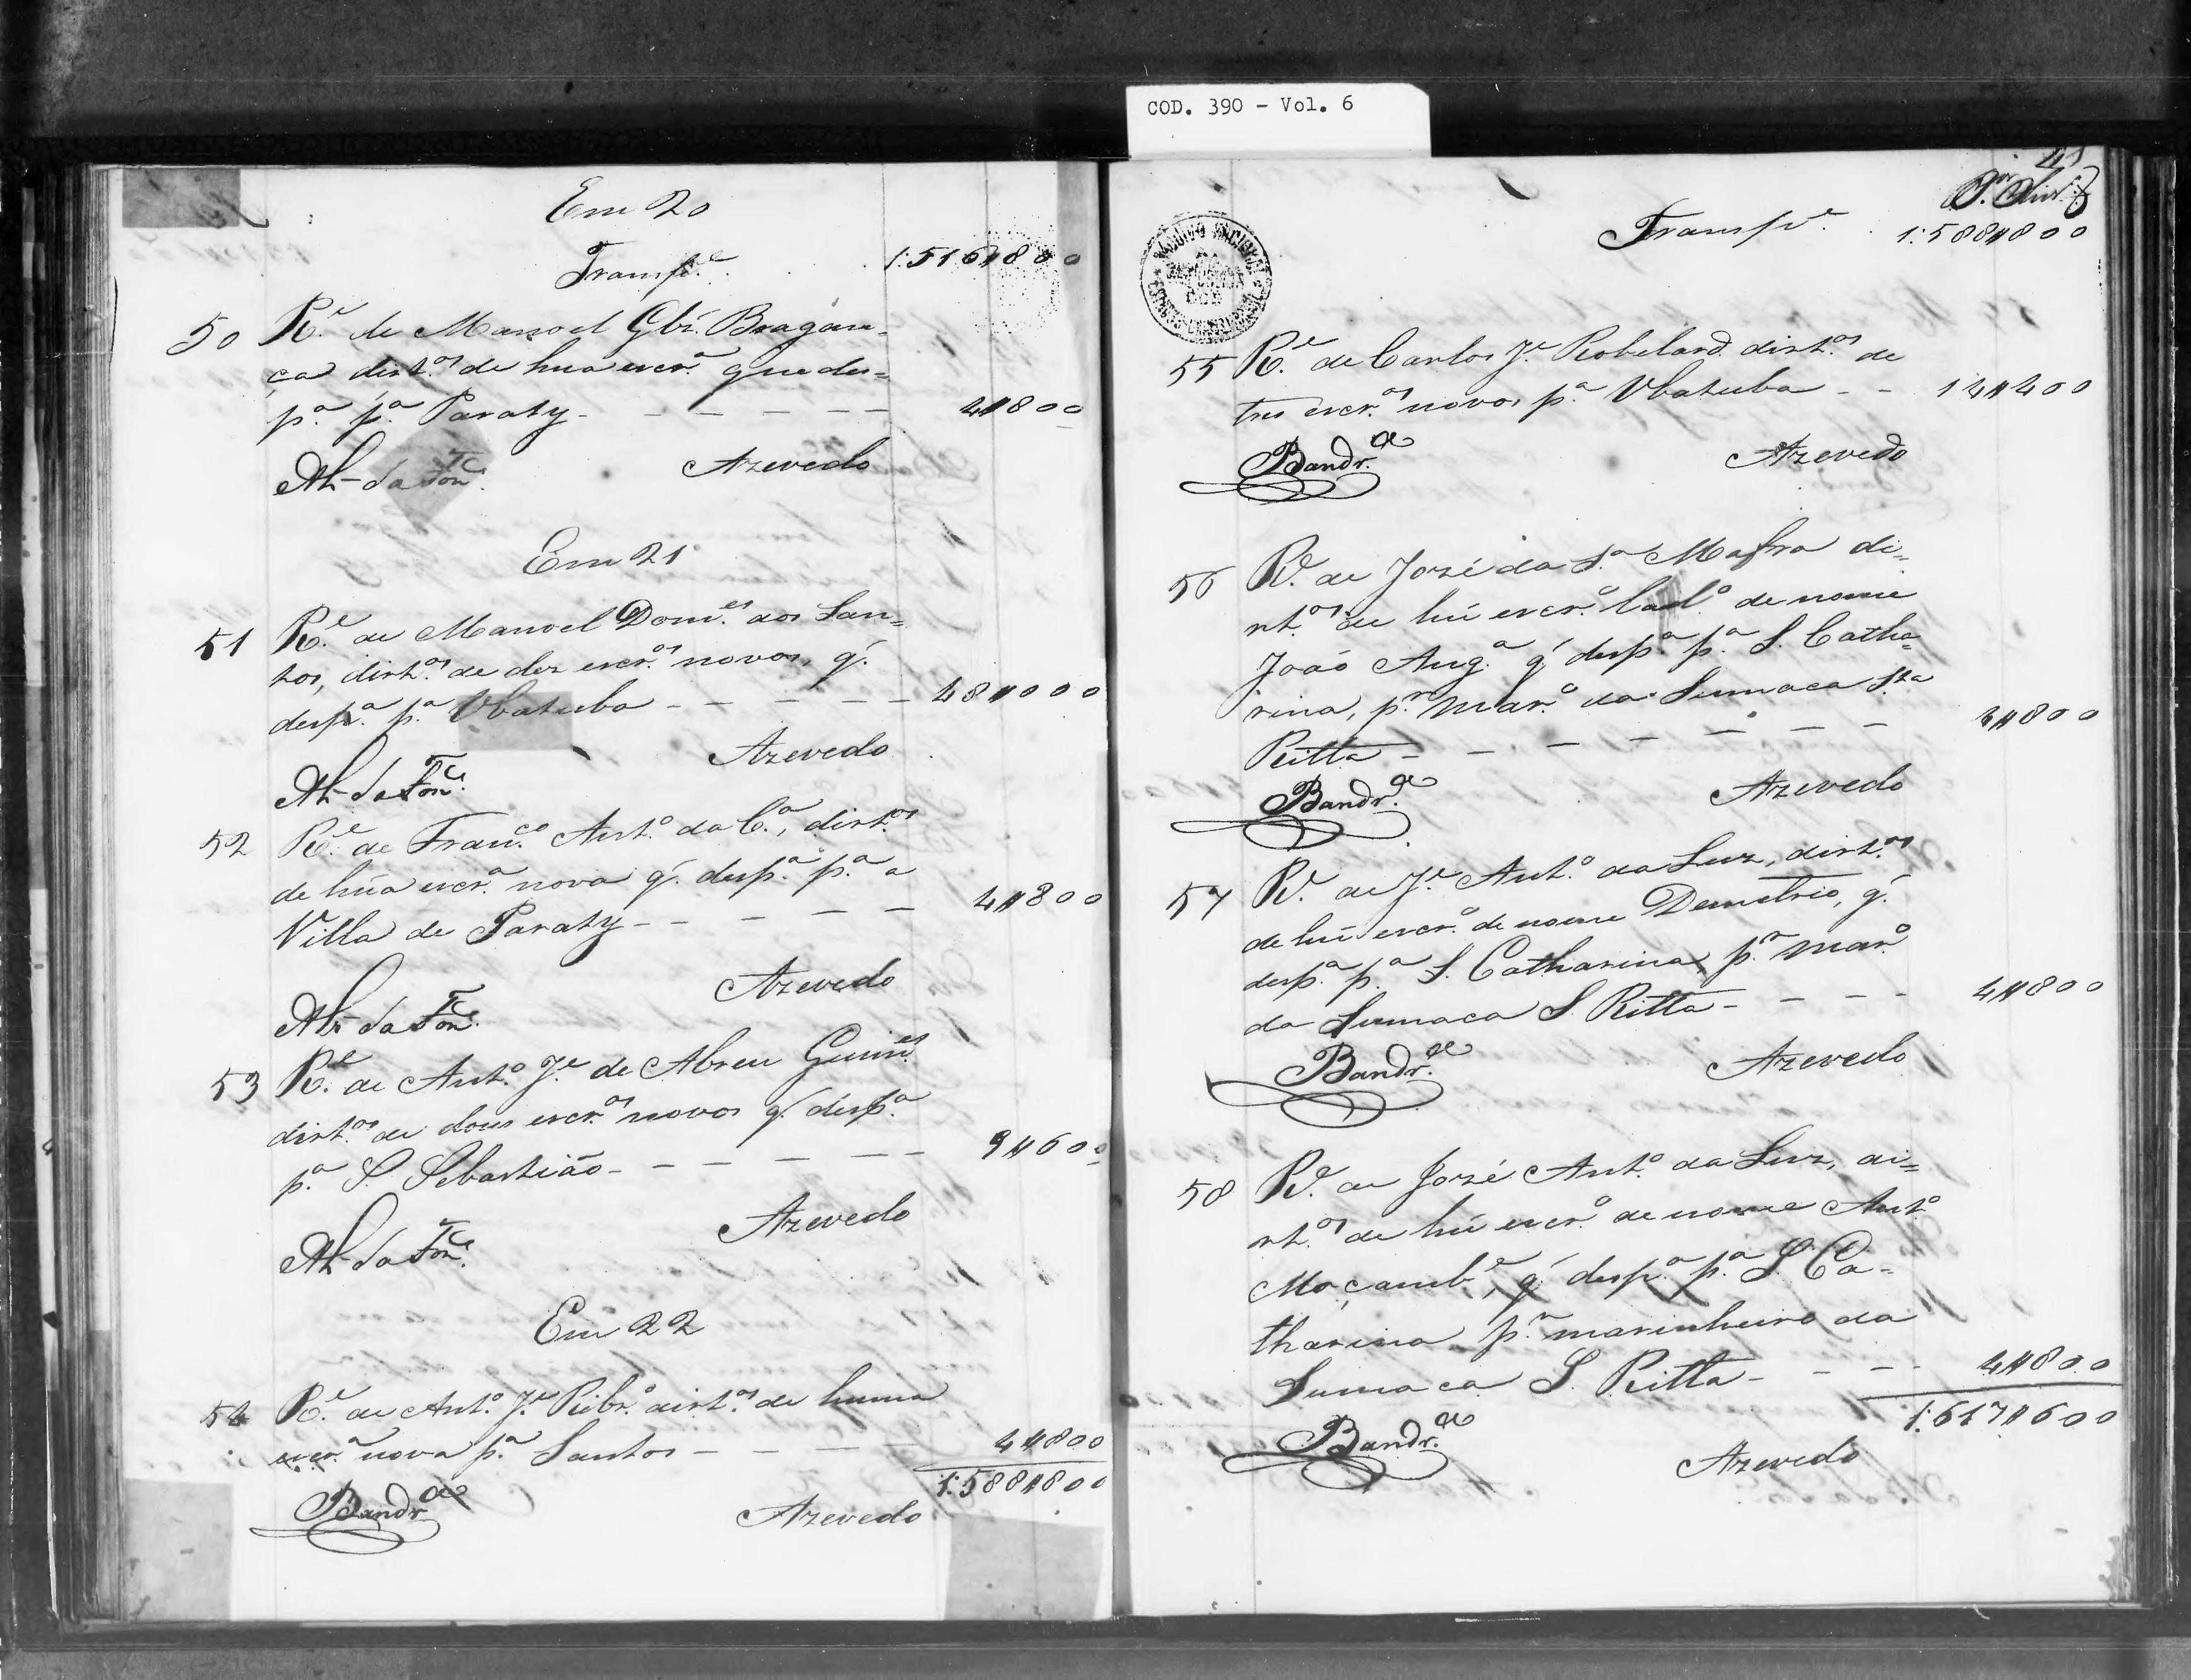 COD. 390 - Vol. 6
Em 20
Transp.e 1:516$800
50 R.e de Manoel Glz. Bragan=
ça dirt.os de hua escr.a que des=
p.a p.a Paraty - - - - - - 4$800
Az.do
Al- da Fon.ca Azevedo
Em 21
51 R.e de Manoel Dom.es dos San=
tos, dirt.os de dez escr.os novos, q.
desp.a p.a Ubatuba - - - - - 48$000
Al- da Fon.ca Azevedo
52 R.e de Fran.co Ant.o da C.a, dirt.os
de hũa escr.a nova q. desp.a p.a a
Villa de Paraty - - - - - 4$800
Al- da Fon.ca Azevedo
53 R.e de Ant.o J.e de Abreu Guim.es
dirt.os de dous escr.os novos q. desp.a
p.a S. Sebastião - - - - - - 9$600
Al- da Fon.ca Azevedo
Em 22
54 R.e de Ant.o J.e Ribr.o dirt.os de huma
escr.a nova p.a Santos - - - - 4$800
1:588$800
Bandr.a Azevedo
Transp.e 1:588$800
55 R.e de Carlos J.e Robelard dirt.os de
tres escr.os novos p.a Ubatuba - - 14$400
Bandr.a Azevedo
56 R.e de José da S.a Mafra di=
rt.os de hũ escr.o lad.o de nome
João Ang.a q. desp.a p.a S. Catha=
rina, p.r mar.o da Sumaca S.ta
Ritta - - - - - - - 4$800
Bandr.a Azevedo
57 R.e de J.e Ant.o da Luz, dirt.os
de hũ escr.o de nome Demetrio, q.
desp.a p.a S. Catharina, p.r mar.o
da Sumaca S. Ritta - - - - 4$800
Bandr.a Azevedo
58 R.e de José Ant.o da Luz, di=
rt.os de hũ escr.o de nome Ant.o
Moçamb.e, q. desp.a p.a S. Ca=
tharina p.r marinheiro da
Sumaca S. Ritta - - - 4$800
1:617$600
Bandr.a Azevedo